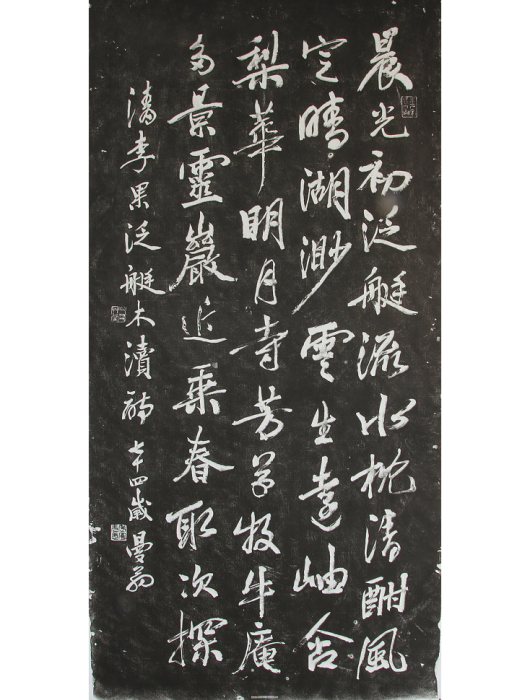 晨光初泛艇流水枕清酣風
定晴湖渺雲生遠岫含
梨華明月寺芳草牧牛庵
多景靈巖近乘春取次探
清李果泛艇木瀆詩 七十四歲曼翁